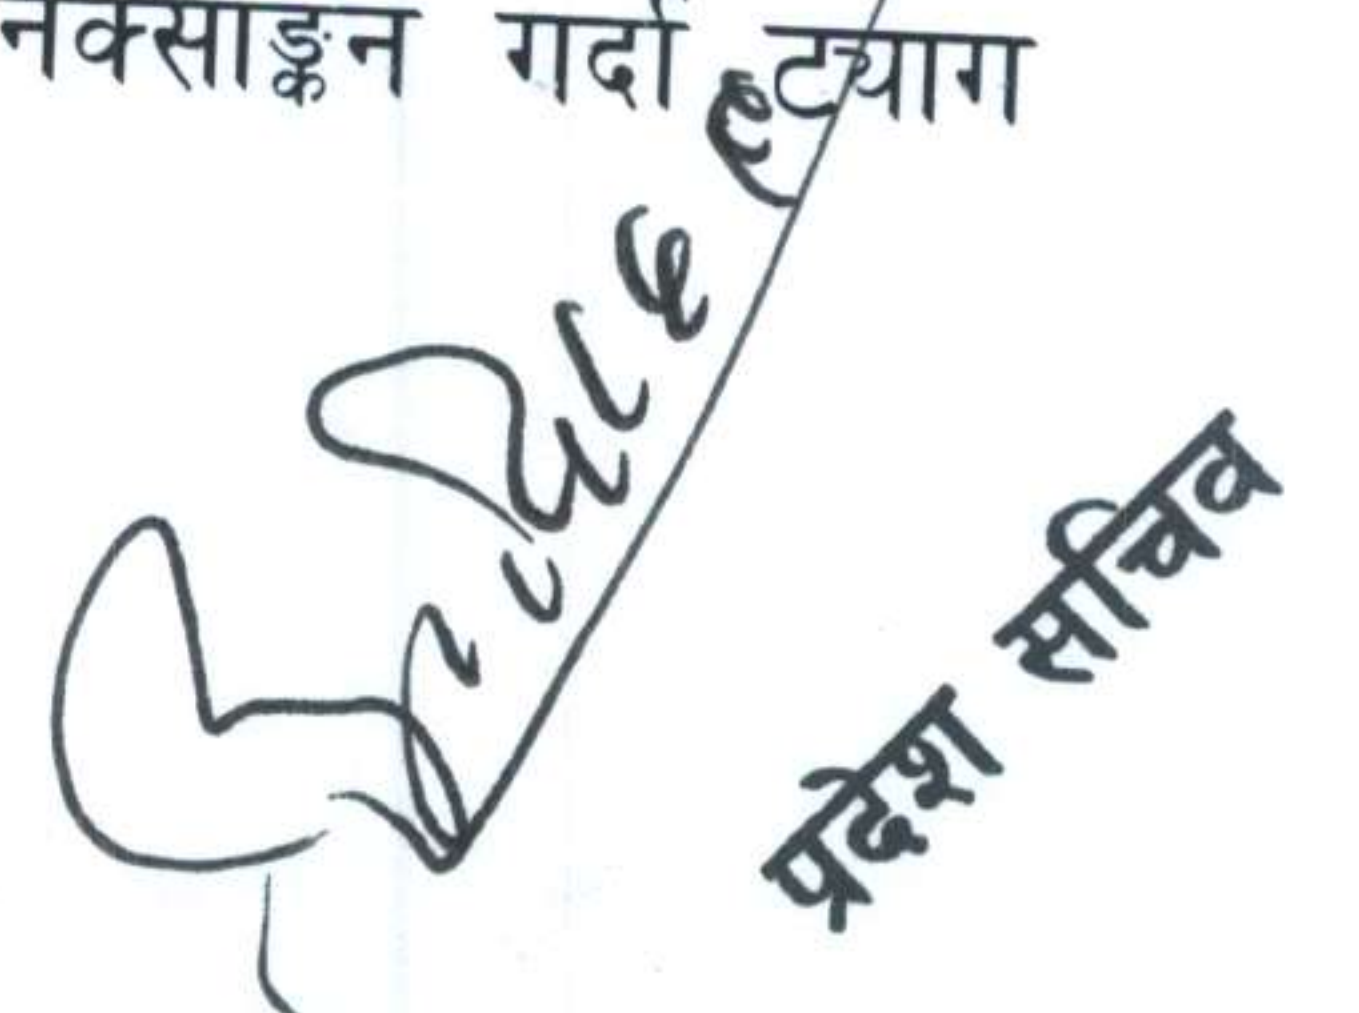 नक्साङ्कन गर्दा ट्याग
प्रदेश सचिव